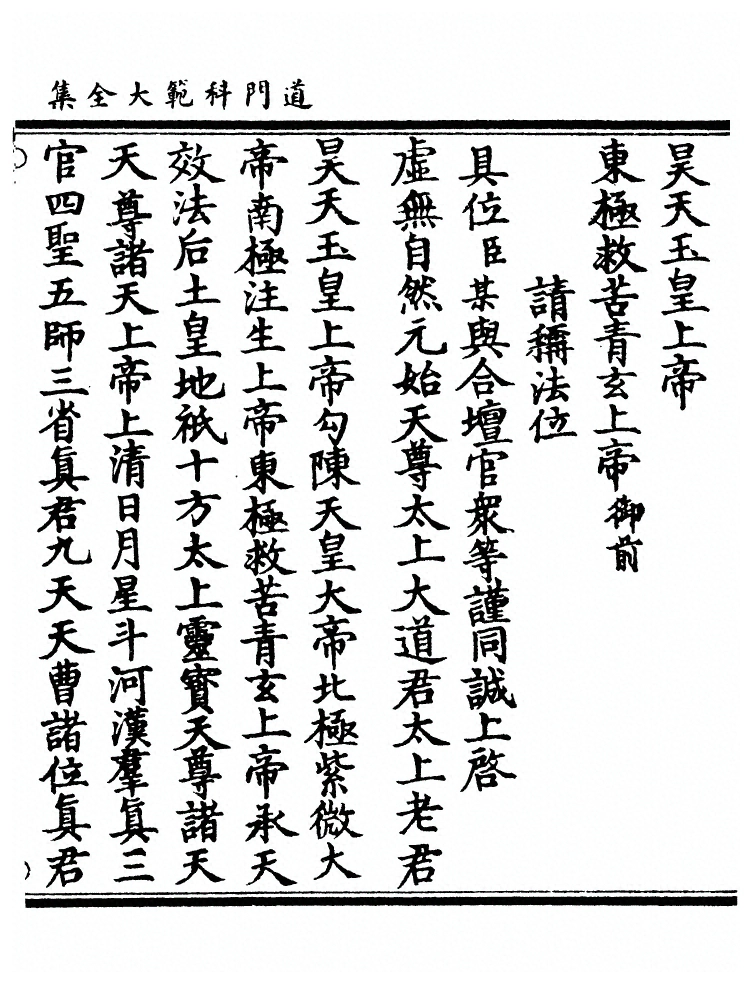 道門科範大全集
昊天玉皇上帝
東極救苦青玄上帝御前
請稱法位
具位臣某與合壇官衆等謹同誠上啓
虛無自然元始天尊太上大道君太上老君
昊天玉皇上帝勾陳天皇大帝北極紫微大
帝南極注生上帝東極救苦青玄上帝承天
效法后土皇地祇十方太上靈寳天尊諸天
天尊諸天上帝上清日月星斗河漢羣眞三
官四聖五師三省眞君九天天曹諸位眞君